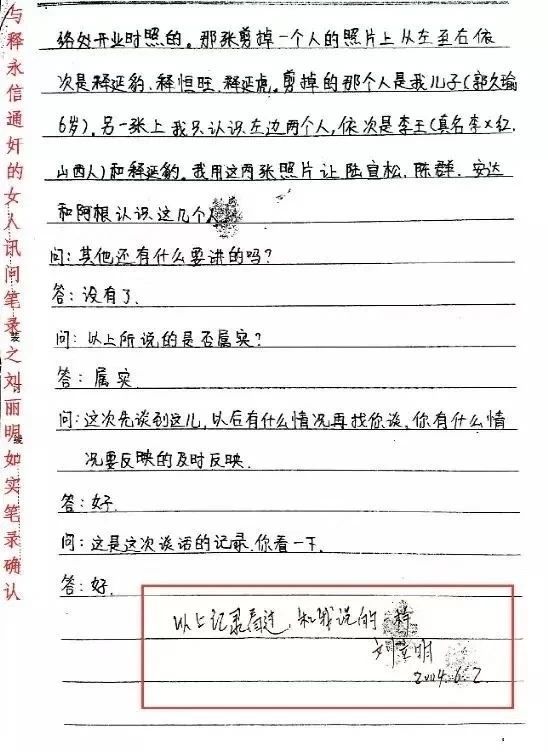 与释永信通奸的女人讯问笔录之刘丽明如实笔录确认
络处开业时照的。那张剪掉一个人的照片上从左至右依
次是释延豹、释恒旺、释延虎。剪掉的那个人是我儿子(郭久瑜
6岁)。另一张上我只认识左边两个人,依次是李玉(真名李×红,
山西人)和释延豹。我用这两张照片让陆宜松、陈群、安达
和阿根认识这几个人
问:其他还有什么要讲的吗?
答:没有了.
问:以上所说的是否属实?
答:属实
问:这次先谈到这儿,以后有什么情况再找你谈,你有什么情
况要反映的及时反映.
答:好.
问:这是这次谈话的记录.你看一下.
答:好.
以上记录看过,和我说的一样
刘立明
2004.6.2.